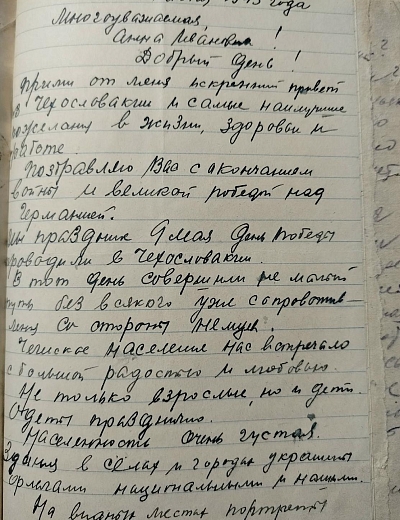 1945 года
Многоуважаемая
Анна Ивановна!
Добрый день!
Прими от меня искренний привет
из Чехословакии и самые наилучшие
пожелания в жизни, здоровьи и
работе.
Поздравляю Вас с акончанием
войны и великой победы над
Германией.
Мы праздник 9 мая День Победы
проводили в Чехословакии.
В тот день совершили не малый
путь без всякого уже сопротив-
ления со стороны немцев.
Чешское население нас встречало
с большой радостью и любовью.
Не только взрослые, но и дети.
Одеты празднично.
Населенность очень густая.
Здания в сёлах и городах украшены
флагами национальными и нашими.
На видных местах портреты